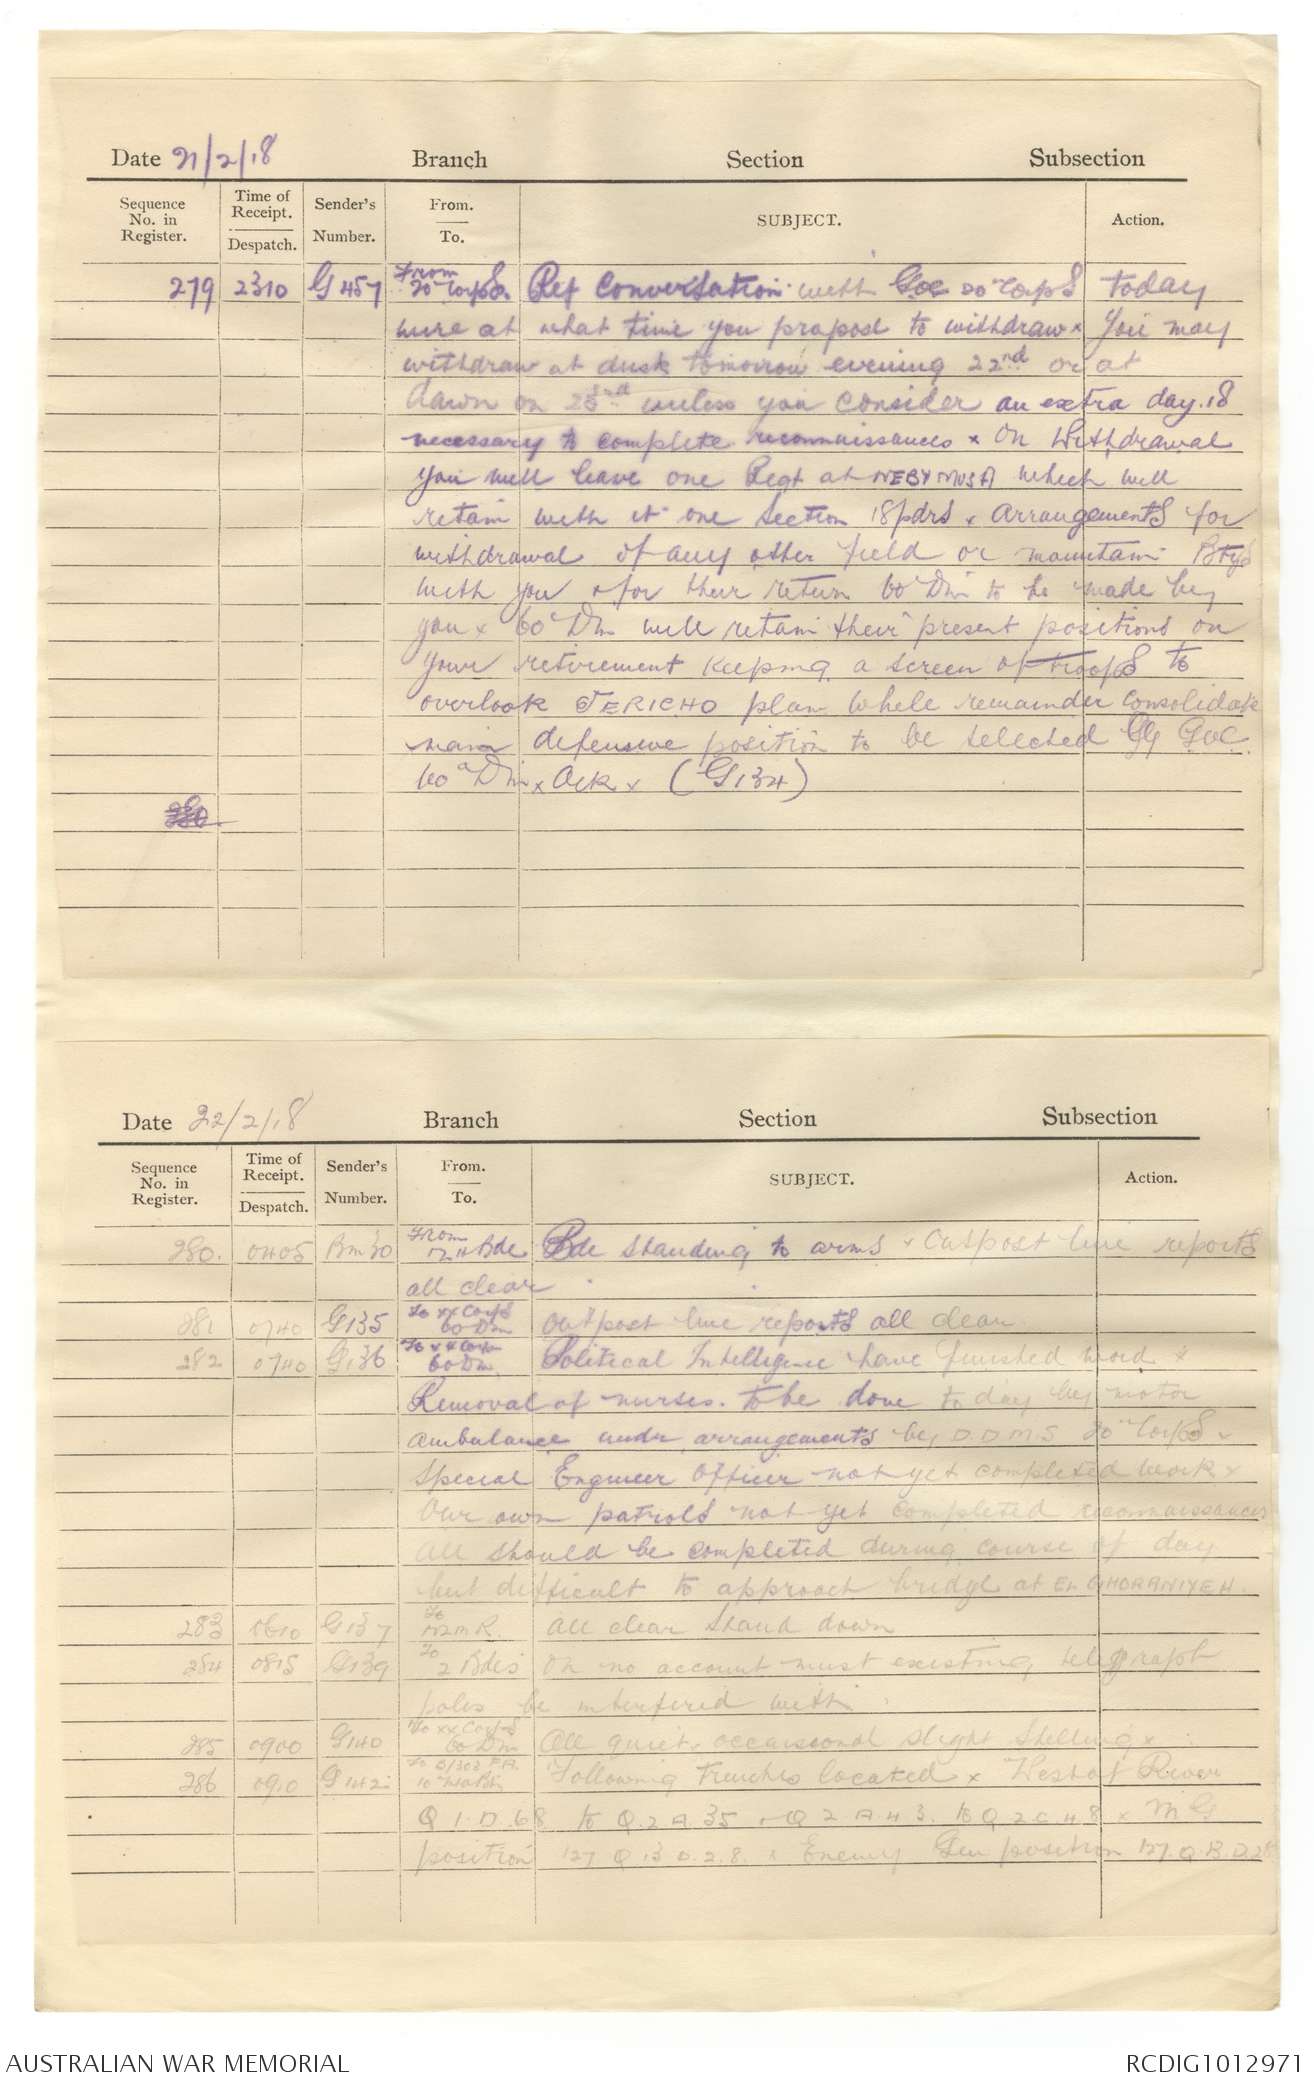 Date 21/2/18 Branch Section Subsection
Sequence No. in Register. Time of Receipt. Despatch. Sender's Number. From. To. SUBJECT. Action.
279 2310 G457 From 20 Corps. Ref Conversation with GOC 20 Corps today
wire at what time you propose to withdraw x You may
withdraw at dusk tomorrow evening 22nd or at
dawn on 23rd unless you consider an extra day is
necessary to complete reconnaissances x On Withdrawal
you will leave one Regt at NEBY MUSA which will
retain with it one Section 18pdrs x Arrangements for
withdrawal of any other field or mountain Btys
with you & for their return 60 Divn to be made by
you x 60 Divn will retain their present positions on
your retirement keeping a screen of troops to
overlook JERICHO plain while remainder consolidate
main defensive position to be selected by GOC
60 Divn x Ack x (G134)
280
Date 22/2/18 Branch Section Subsection
Sequence No. in Register. Time of Receipt. Despatch. Sender's Number. From. To. SUBJECT. Action.
280. 0405 Bm30 From 12 LH Bde Bde standing to arms x Outpost line reports
all clear
281 0740 G135 To xx Corps 60 Divn Outpost line reports all clear.
282 0740 G136 To xx Corps 60 Divn. Political Intelligence have finished work x
Removal of nurses. to be done to day by motor
ambulance under arrangements by D.D.M.S 20 Corps x
Special Engineer Officer not yet completed work x
Our own patrols not yet completed reconnaissances
All should be completed during course of day
but difficult to approach bridge at EL GHORANIYEH.
283 0610 G137 To NZMR. All clear Stand down
284 0815 G139 To 2 Bdes On no account must existing telegraph
poles be interfered with.
285 0900 G140 To xx Corps 60 Divn All quiet. occaisional slight shelling x
286 0910 G142 To B/302 F.A. Following trenches located x West of River
Q 1. D. 68 to Q. 2 A. 35 & Q 2 A. 43. to Q 2 C 4.8 x MG
position 127 Q 13 D. 2. 8. x Enemy Gun position 127. Q. B. D. 28
AUSTRALIAN WAR MEMORIAL RCDIG1012971